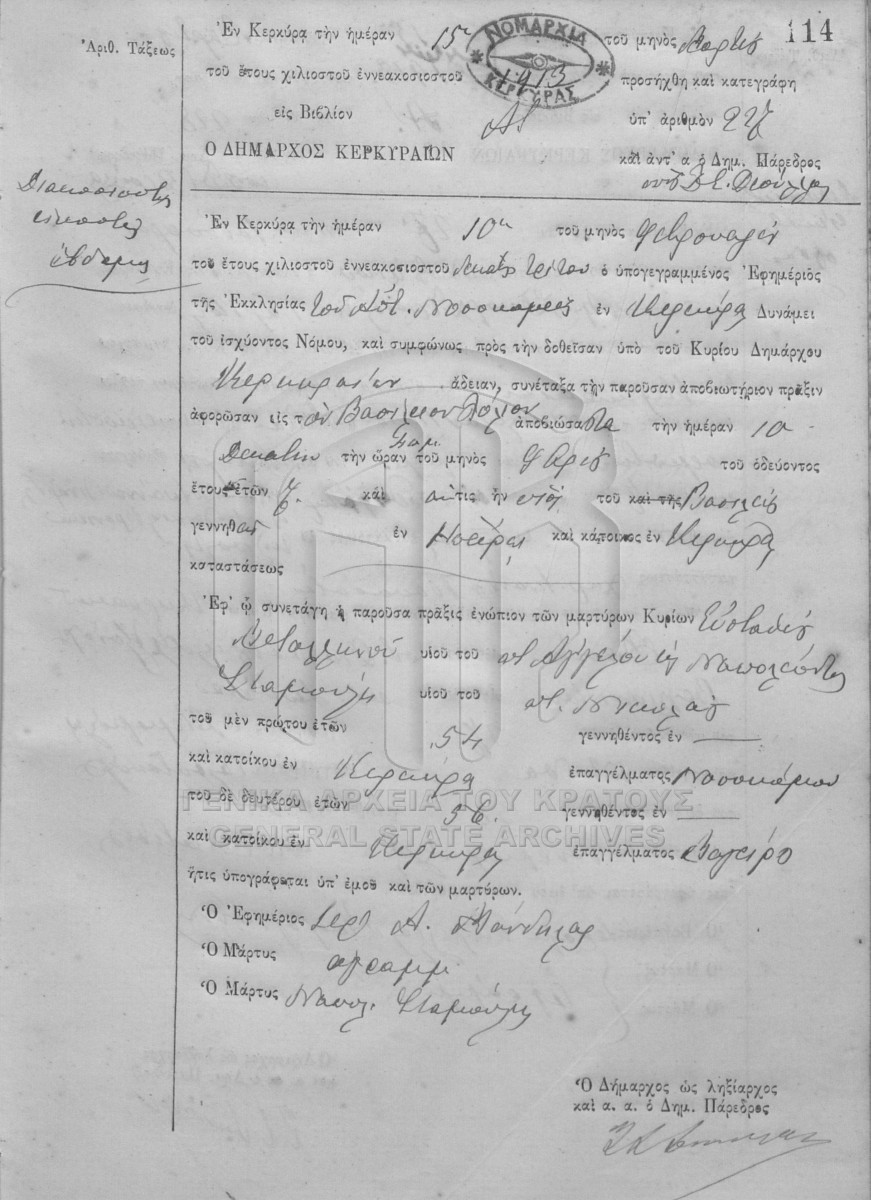 114
Ἀριθ. Τάξεως
Ἐν Κερκύρᾳ τὴν ἡμέραν 15η τοῦ μηνὸς
ΝΟΜΑΡΧΙΑ ΚΕΡΚΥΡΑΣ
τοῦ ἔτους χιλιοστοῦ ἐννεακοσιοστοῦ 1913 προσήχθη καὶ κατεγράφη
εἰς Βιβλίον ὑπ' ἀριθμὸν 227
Ο ΔΗΜΑΡΧΟΣ ΚΕΡΚΥΡΑΙΩΝ καὶ ἀντ' α ὁ Δημ. Πάρεδρος
Διακοσιοστὴ
εἰκοστὴ
ἑβδόμη
Ἐν Κερκύρᾳ τὴν ἡμέραν 10η τοῦ μηνὸς Φεβρουαρίου
τοῦ ἔτους χιλιοστοῦ ἐννεακοσιοστοῦ δεκάτου τρίτου ὁ ὑπογεγραμμένος Ἐφημέριος
τῆς Ἐκκλησίας τοῦ Νοσοκομείου ἐν Κερκύρᾳ Δυνάμει
τοῦ ἰσχύοντος Νόμου, καὶ συμφώνως πρὸς τὴν δοθεῖσαν ὑπὸ τοῦ Κυρίου Δημάρχου
Κερκυραίων ἄδειαν, συνέταξα τὴν παροῦσαν ἀποβιωτήριον πρᾶξιν
ἀφορῶσαν εἰς τὸν ἀποβιώσαντα τὴν ἡμέραν 10
δεκάτην τὴν ὥραν π.μ. τοῦ μηνὸς τοῦ ὁδεύοντος
ἔτους ἐτῶν καὶ αὐτις ἦν υἱὸς τοῦ καὶ τῆς Βασιλείου
γεννηθεὶς ἐν καὶ κάτοικος ἐν Κερκύρᾳ
καταστάσεως
Ἐφ' ᾧ συνετάγη ἡ παροῦσα πρᾶξις ἐνώπιον τῶν μαρτύρων Κυρίων Εὐσταθίου
υἱοῦ τοῦ π. Ἀγγέλου καὶ Ναπολέοντος
Σταμούλη υἱοῦ τοῦ π. Νικολάου
τοῦ μὲν πρώτου ἐτῶν 54 γεννηθέντος ἐν
καὶ κατοίκου ἐν Κερκύρᾳ ἐπαγγέλματος Νοσοκόμου
ΓΕΝΙΚΑ ΑΡΧΕΙΑ ΤΟΥ ΚΡΑΤΟΥΣ
τοῦ δὲ δευτέρου ἐτῶν 56 γεννηθέντος ἐν
GENERAL STATE ARCHIVES
καὶ κατοίκου ἐν Κερκύρᾳ ἐπαγγέλματος Μαγείρου
ἥτις ὑπογράφεται ὑπ' ἐμοῦ καὶ τῶν μαρτύρων.
Ὁ Ἐφημέριος Ἱερ. Α.
Ὁ Μάρτυς ἀγράμμ.
Ὁ Μάρτυς Ναπολ. Σταμούλης
Ὁ Δήμαρχος ὡς ληξίαρχος
καὶ α. α. ὁ Δημ. Πάρεδρος